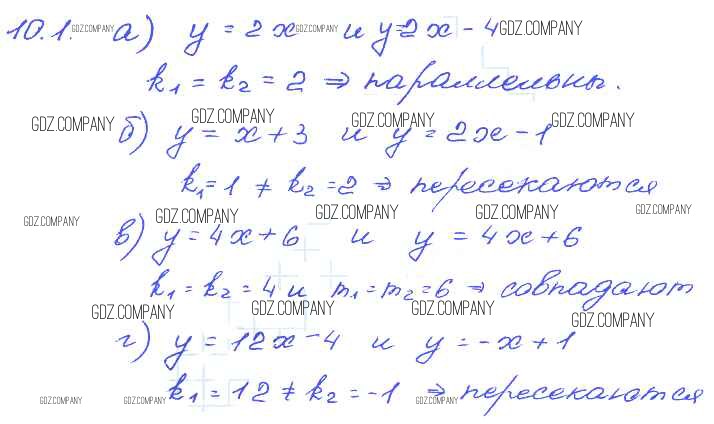 10.1. GDZ.COMPANY а) y = 2x GDZ.COMPANY и y=2x - 4 GDZ.COMPANY
k₁ = k₂ = 2 ⇒ параллельны.
GDZ.COMPANY б) GDZ.COMPANY y = x + 3 и GDZ.COMPANY y = 2x - 1 GDZ.COMPANY
k₁ = 1 ≠ k₂ = 2 ⇒ пересекаются
GDZ.COMPANY GDZ.COMPANY GDZ.COMPANY GDZ.COMPANY GDZ.COMPANY
в) y = 4x + 6 и y = 4x + 6
k₁ = k₂ = 4 и m₁ = m₂ = 6 ⇒ совпадают
GDZ.COMPANY GDZ.COMPANY GDZ.COMPANY GDZ.COMPANY
г) y = 12x - 4 и y = -x + 1
GDZ.COMPANY GDZ.COMPANY k₁ = 12 ≠ k₂ = -1 GDZ.COMPANY ⇒ пересекаются